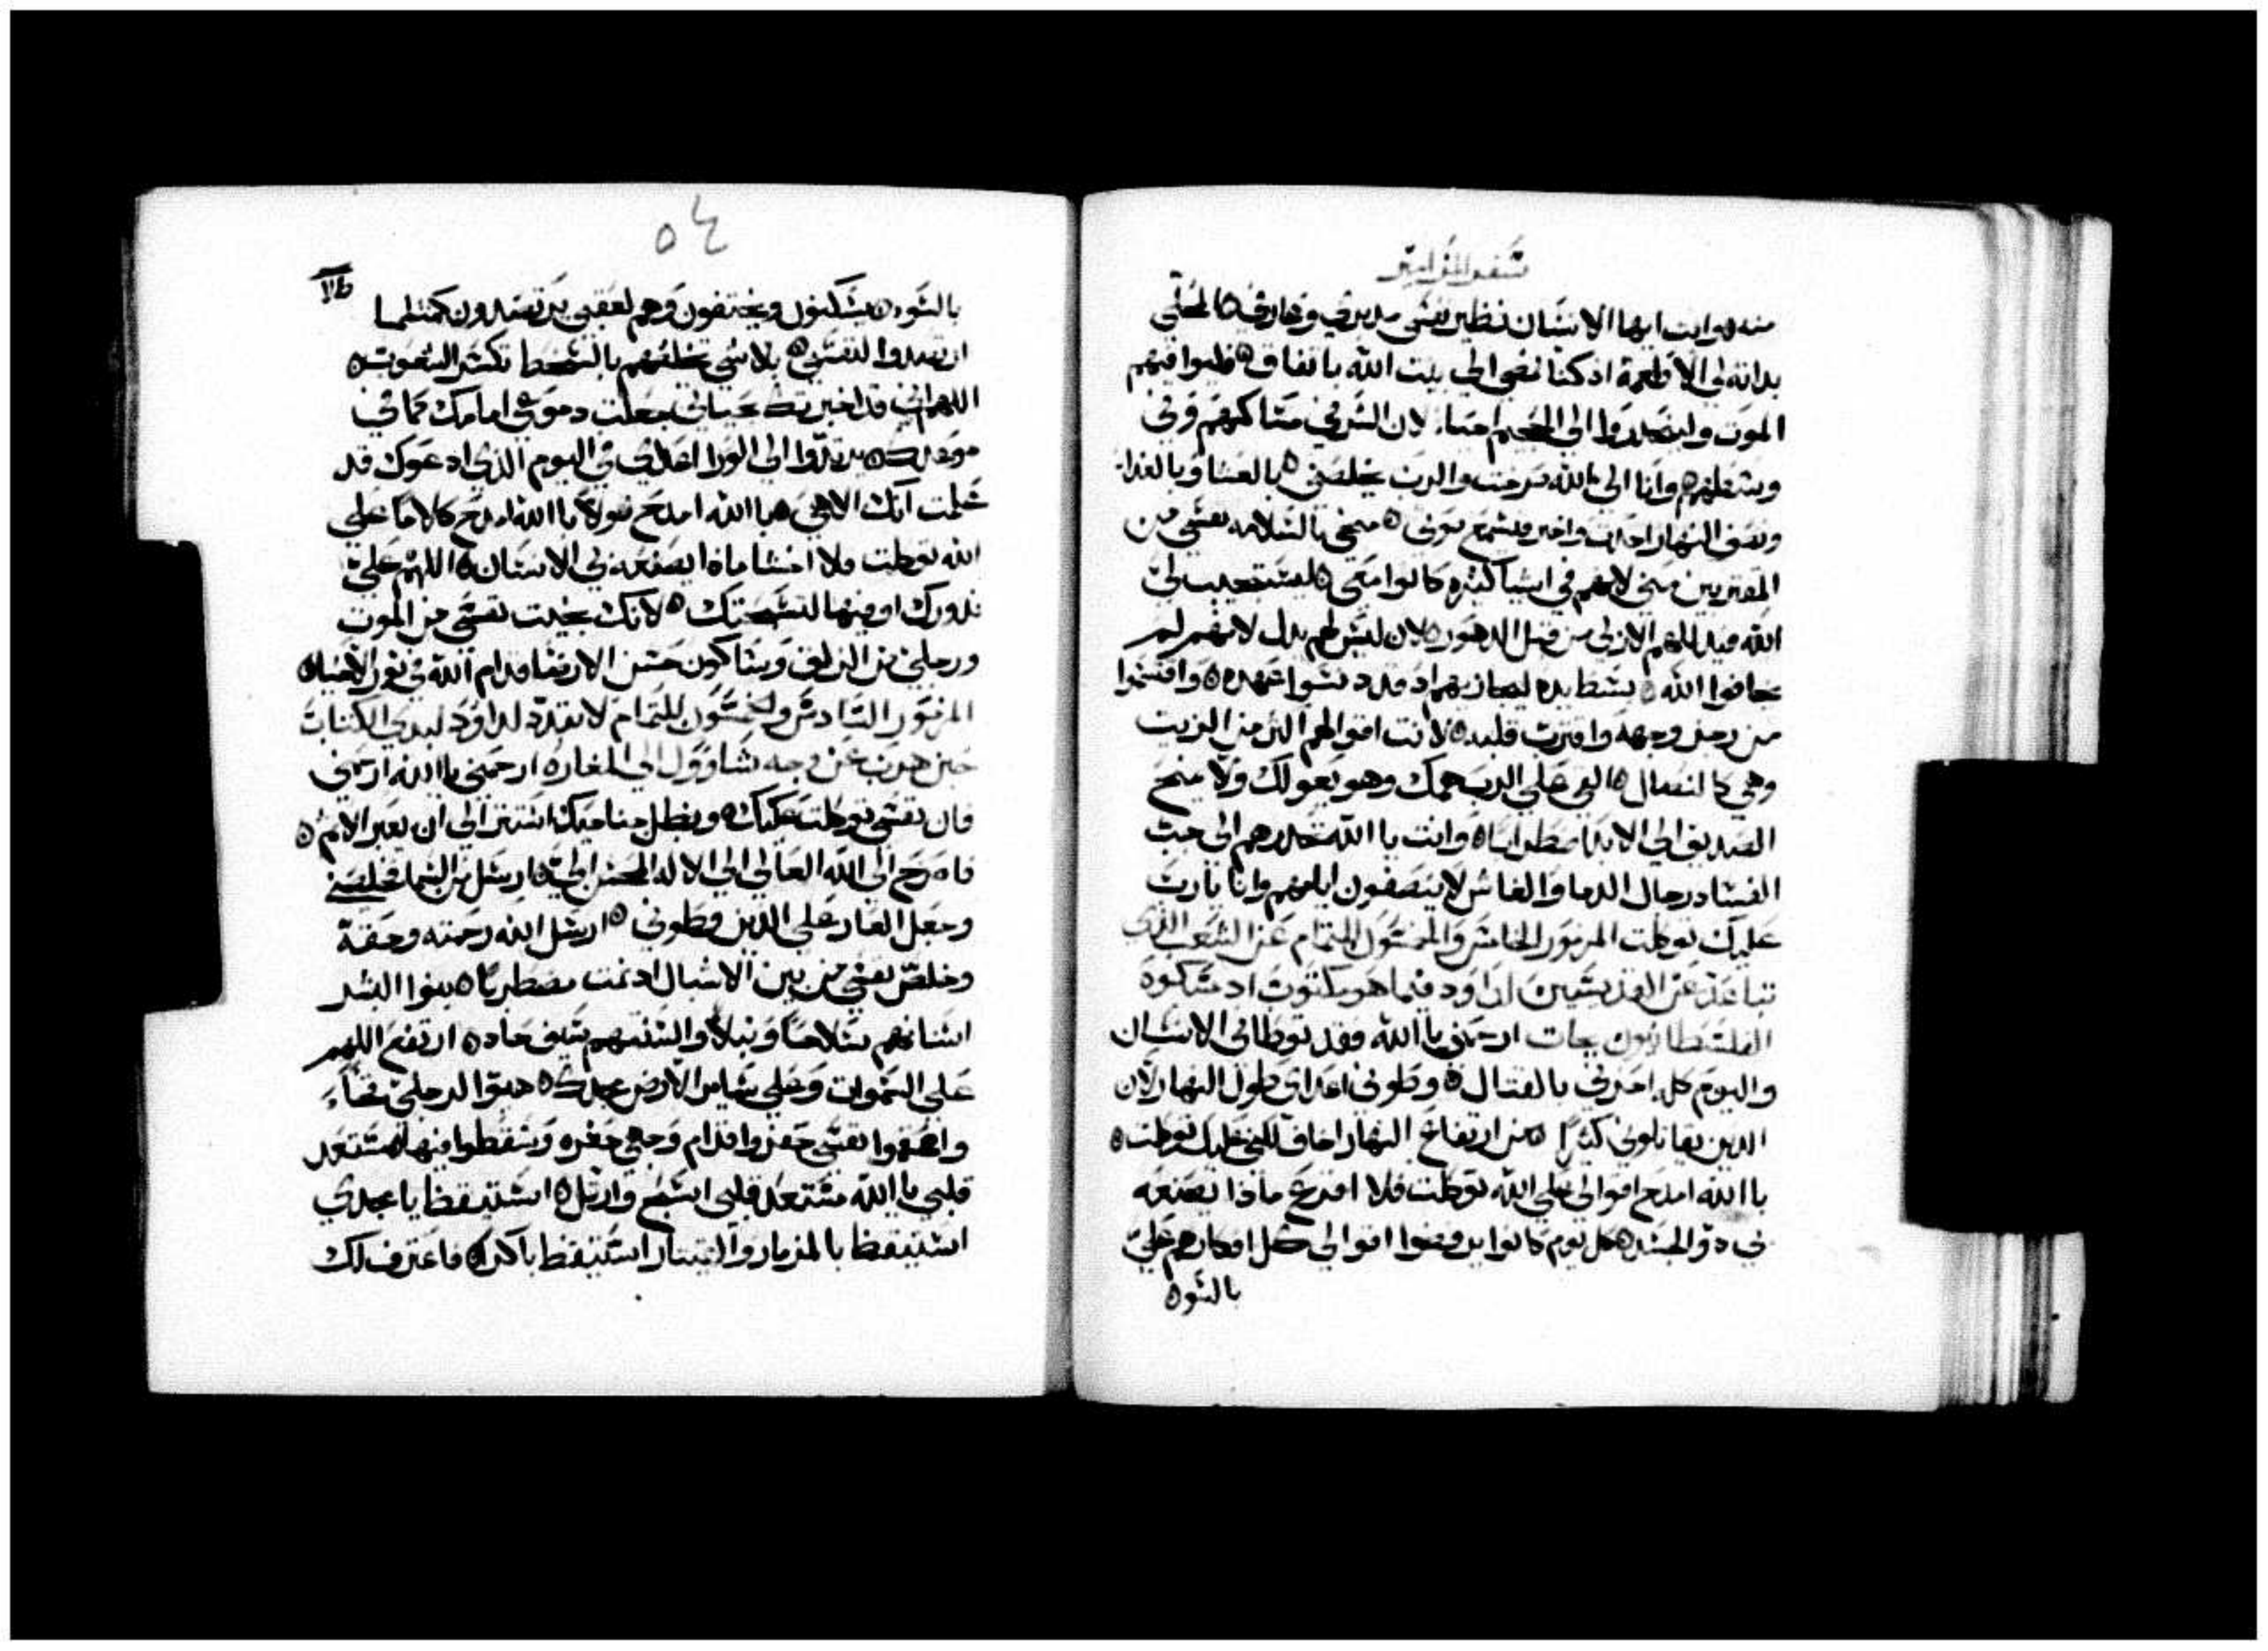 سفر المزامير
منه وانت ايها الانسان نظير نفسي مدبري وعارفي المحلي
بذاته لي الاطعمة اذ كنا نمضي الي بيت الله باتفاق فليوافيهم
الموت ولينحدروا الي الجحيم احيا لان الشر في مساكنهم وفي
وسطهم وانا الي الله صرخت والرب يخلصني بالعشا وبالغدا
ونصف النهار احدث واخبر فيسمع صوتي منجي بالسلامه نفسي من
المقتربين مني لانهم في اشيا كثيره كانوا معي ليستجيب لي
الله فيذلهم الازلي من قبل الدهور لان ليس لهم بدل لانهم لم
يخافوا الله بسط يده ليجازيهم اذ قد دنسوا عهده واقتسموا
من رجز وجهه واقترب قلبه لانت اقوالهم الين من الزيت
وهي كا انصال القي علي الرب همك وهو يعولك ولا يمنح
الصديق الي الابد اضطرابا وانت يا الله تحدرهم الي جب
الفساد رجال الدما والغاش لا ينصفون ايامهم وانا يارب
عليك توكلت المزمور الخامس والخمسون للتمام عن الشعب الذي
تباعد عن القديسين لداوود فيما هو مكتوب اذ مسكوه
الفلسطانيون بجات ارحمني يا الله فقد توطاني الانسان
واليوم كله احزني بالقتال وطوني اعداي طول النهار لان
الذين يقاتلوني كثيرا من ارتفاع النهار اخاف لكني عليك توكلت
يا الله امدح اقوالي علي الله توكلت فلا افزع ماذا يصنعه
بي ذو الجسد كل يوم كانوا يرفضوا اقوالي كل افكارهم علي
بالسوه
٥٤
بالسوه يسكنون ويختفون وهم لعقبي يرتصدون كمثلما
ارتصدوا لنفسي بلا شي تخلصهم بالسخط تكسر الشعوب
اللهم اني قد اخبرتك بحياتي جعلت دموعي امامك كما في
موعدك يرتدوا الي الورا اعداي في اليوم الذي ادعوك قد
علمت انك الاهي هو با الله امدح قولا با الله امدح كلاما علي
الله توكلت فلا اخشا ماذا يصنعه بي الانسان اللهم علي
نذورك اوفيها لتسبحتك لانك نجيت نفسي من الموت
ورجلي من الزلق وساكون حسن الارضا قدام الله في نور الاحيا
المزمور السادس والخمسون للتمام لا تفسد لداوود لبدي الكتاب
حين هرب عن وجه شاوول الي المغاره ارحمني يا الله ارحمني
فان نفسي توكلت عليك وبظل جناحيك استتر الي ان يعبر الاثم
فاصرخ الي الله العالي الي الاله المحسن الي ارسل من السما فخلصني
وجعل العار علي الذين وطوني ارسل الله رحمته وحقه
وخلص نفسي من بين الاشبال اذ نمت مضطربا بنوا البشر
اسنانهم سلاحا ونبلا والسنتهم سيف حاد ارتفع اللهم
علي السموات وعلي ساير الارض مجدك هيوا لرجلي فخا
واحنوا نفسي حفروا قدام وجهي حفره وسقطوا فيها مستعد
قلبي يا الله مستعد قلبي اسبح وارتل استيقظ يا مجدي
استيقظ بالمزمار والقيتار استيقظ باكرا فاعترف لك